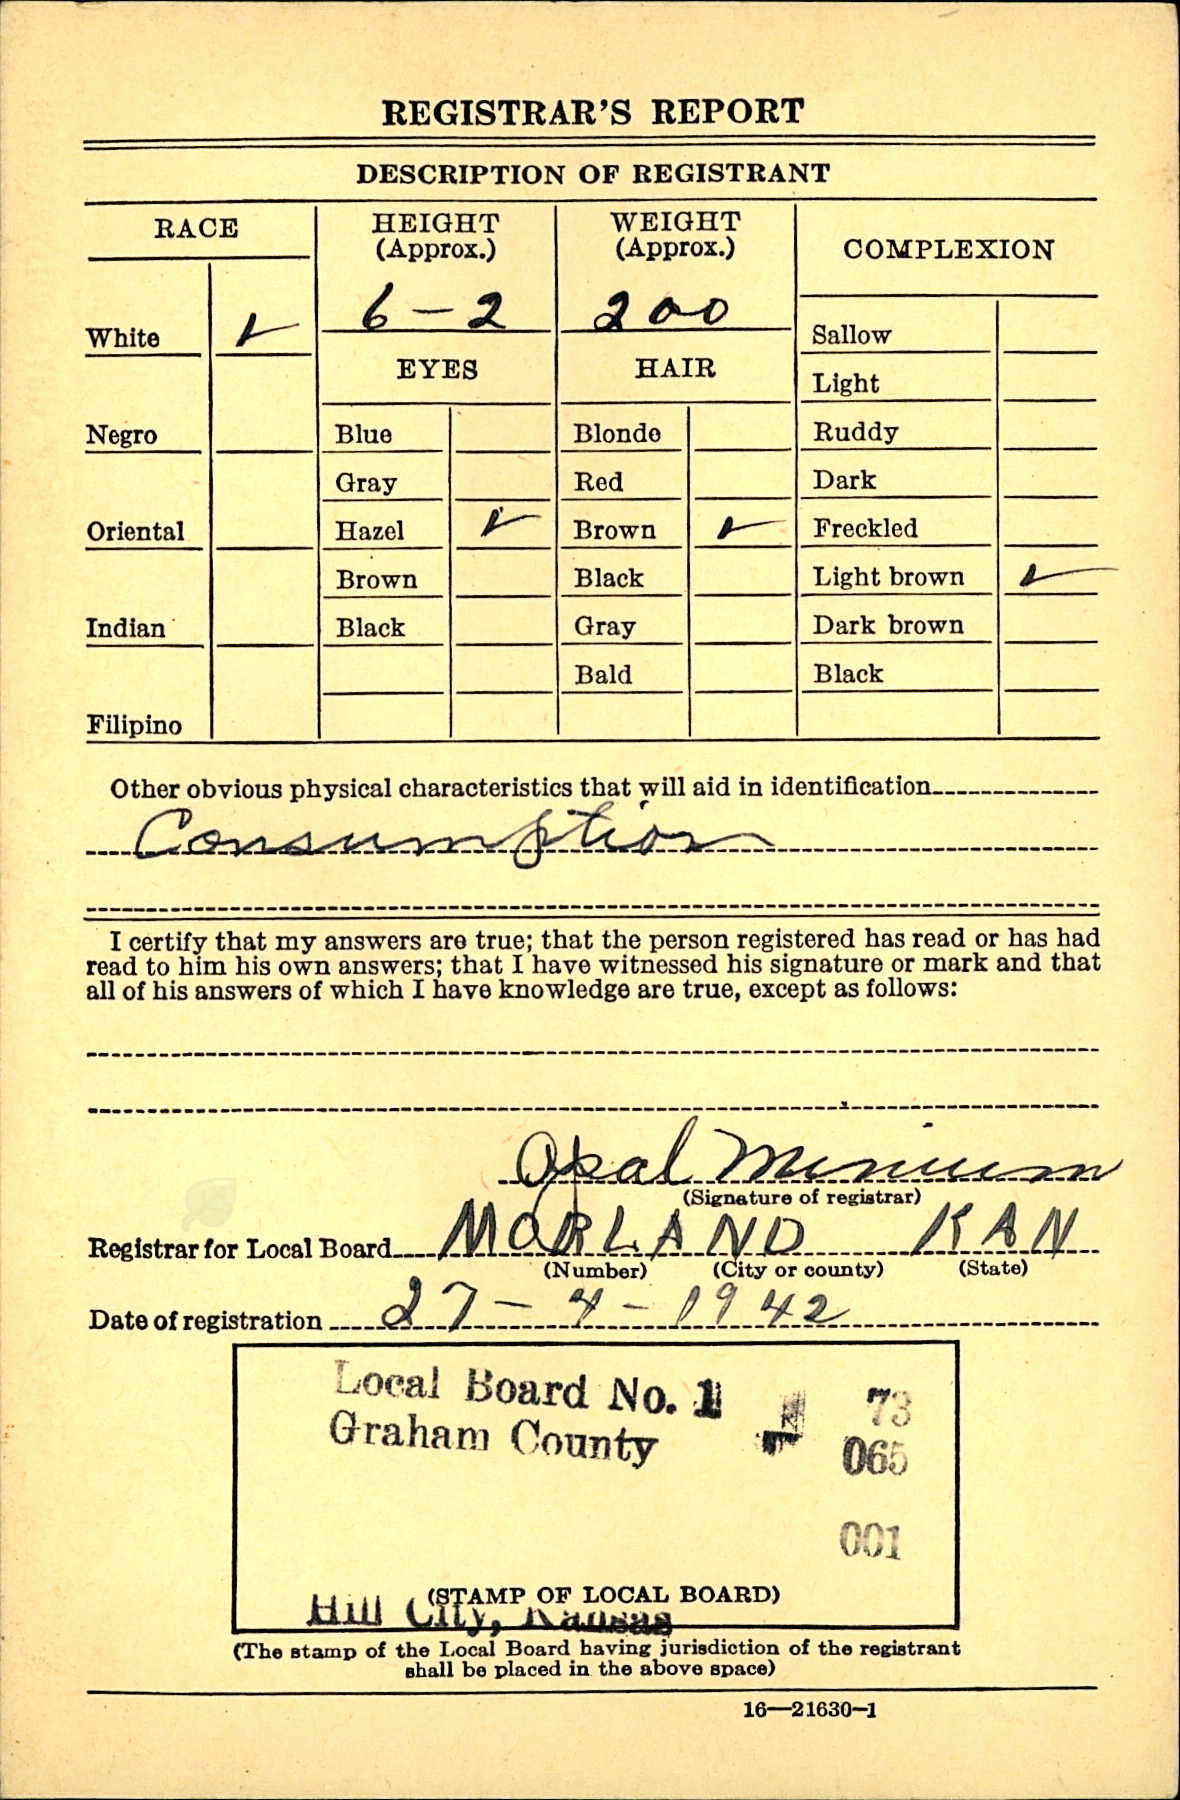 REGISTRAR'S REPORT
DESCRIPTION OF REGISTRANT
RACE
HEIGHT
(Approx.)
WEIGHT
(Approx.)
COMPLEXION
6 – 2
200
White ✓
EYES
HAIR
Sallow
Light
Negro
Blue
Blonde
Ruddy
Gray
Red
Dark
Oriental
Hazel ✓
Brown ✓
Freckled
Brown
Black
Light brown ✓
Indian
Black
Gray
Dark brown
Bald
Black
Filipino
Other obvious physical characteristics that will aid in identification
Consumption
I certify that my answers are true; that the person registered has read or has had
read to him his own answers; that I have witnessed his signature or mark and that
all of his answers of which I have knowledge are true, except as follows:
Opal Minium
(Signature of registrar)
Registrar for Local Board MORLAND KAN
(Number) (City or county) (State)
Date of registration 27 – 4 – 1942
Local Board No. 1 73
Graham County 065
001
(STAMP OF LOCAL BOARD)
Hill City, Kansas
(The stamp of the Local Board having jurisdiction of the registrant
shall be placed in the above space)
16—21630-1